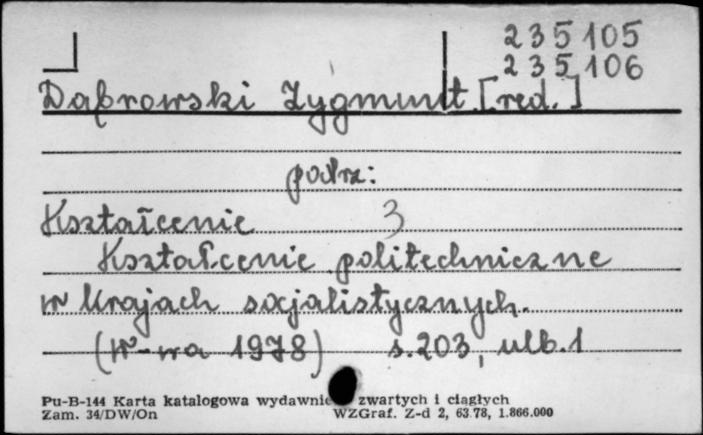 235105
235106
Dąbrowski Zygmunt [red.]
patrz:
Kształcenie 3
Kształcenie politechniczne
w krajach socjalistycznych.
(W-wa 1978) s.203, ulb.1
Pu-B-144 Karta katalogowa wydawnic zwartych i ciągłych
Zam. 34/DW/On WZGraf. Z-d 2, 63.78, 1.866.000